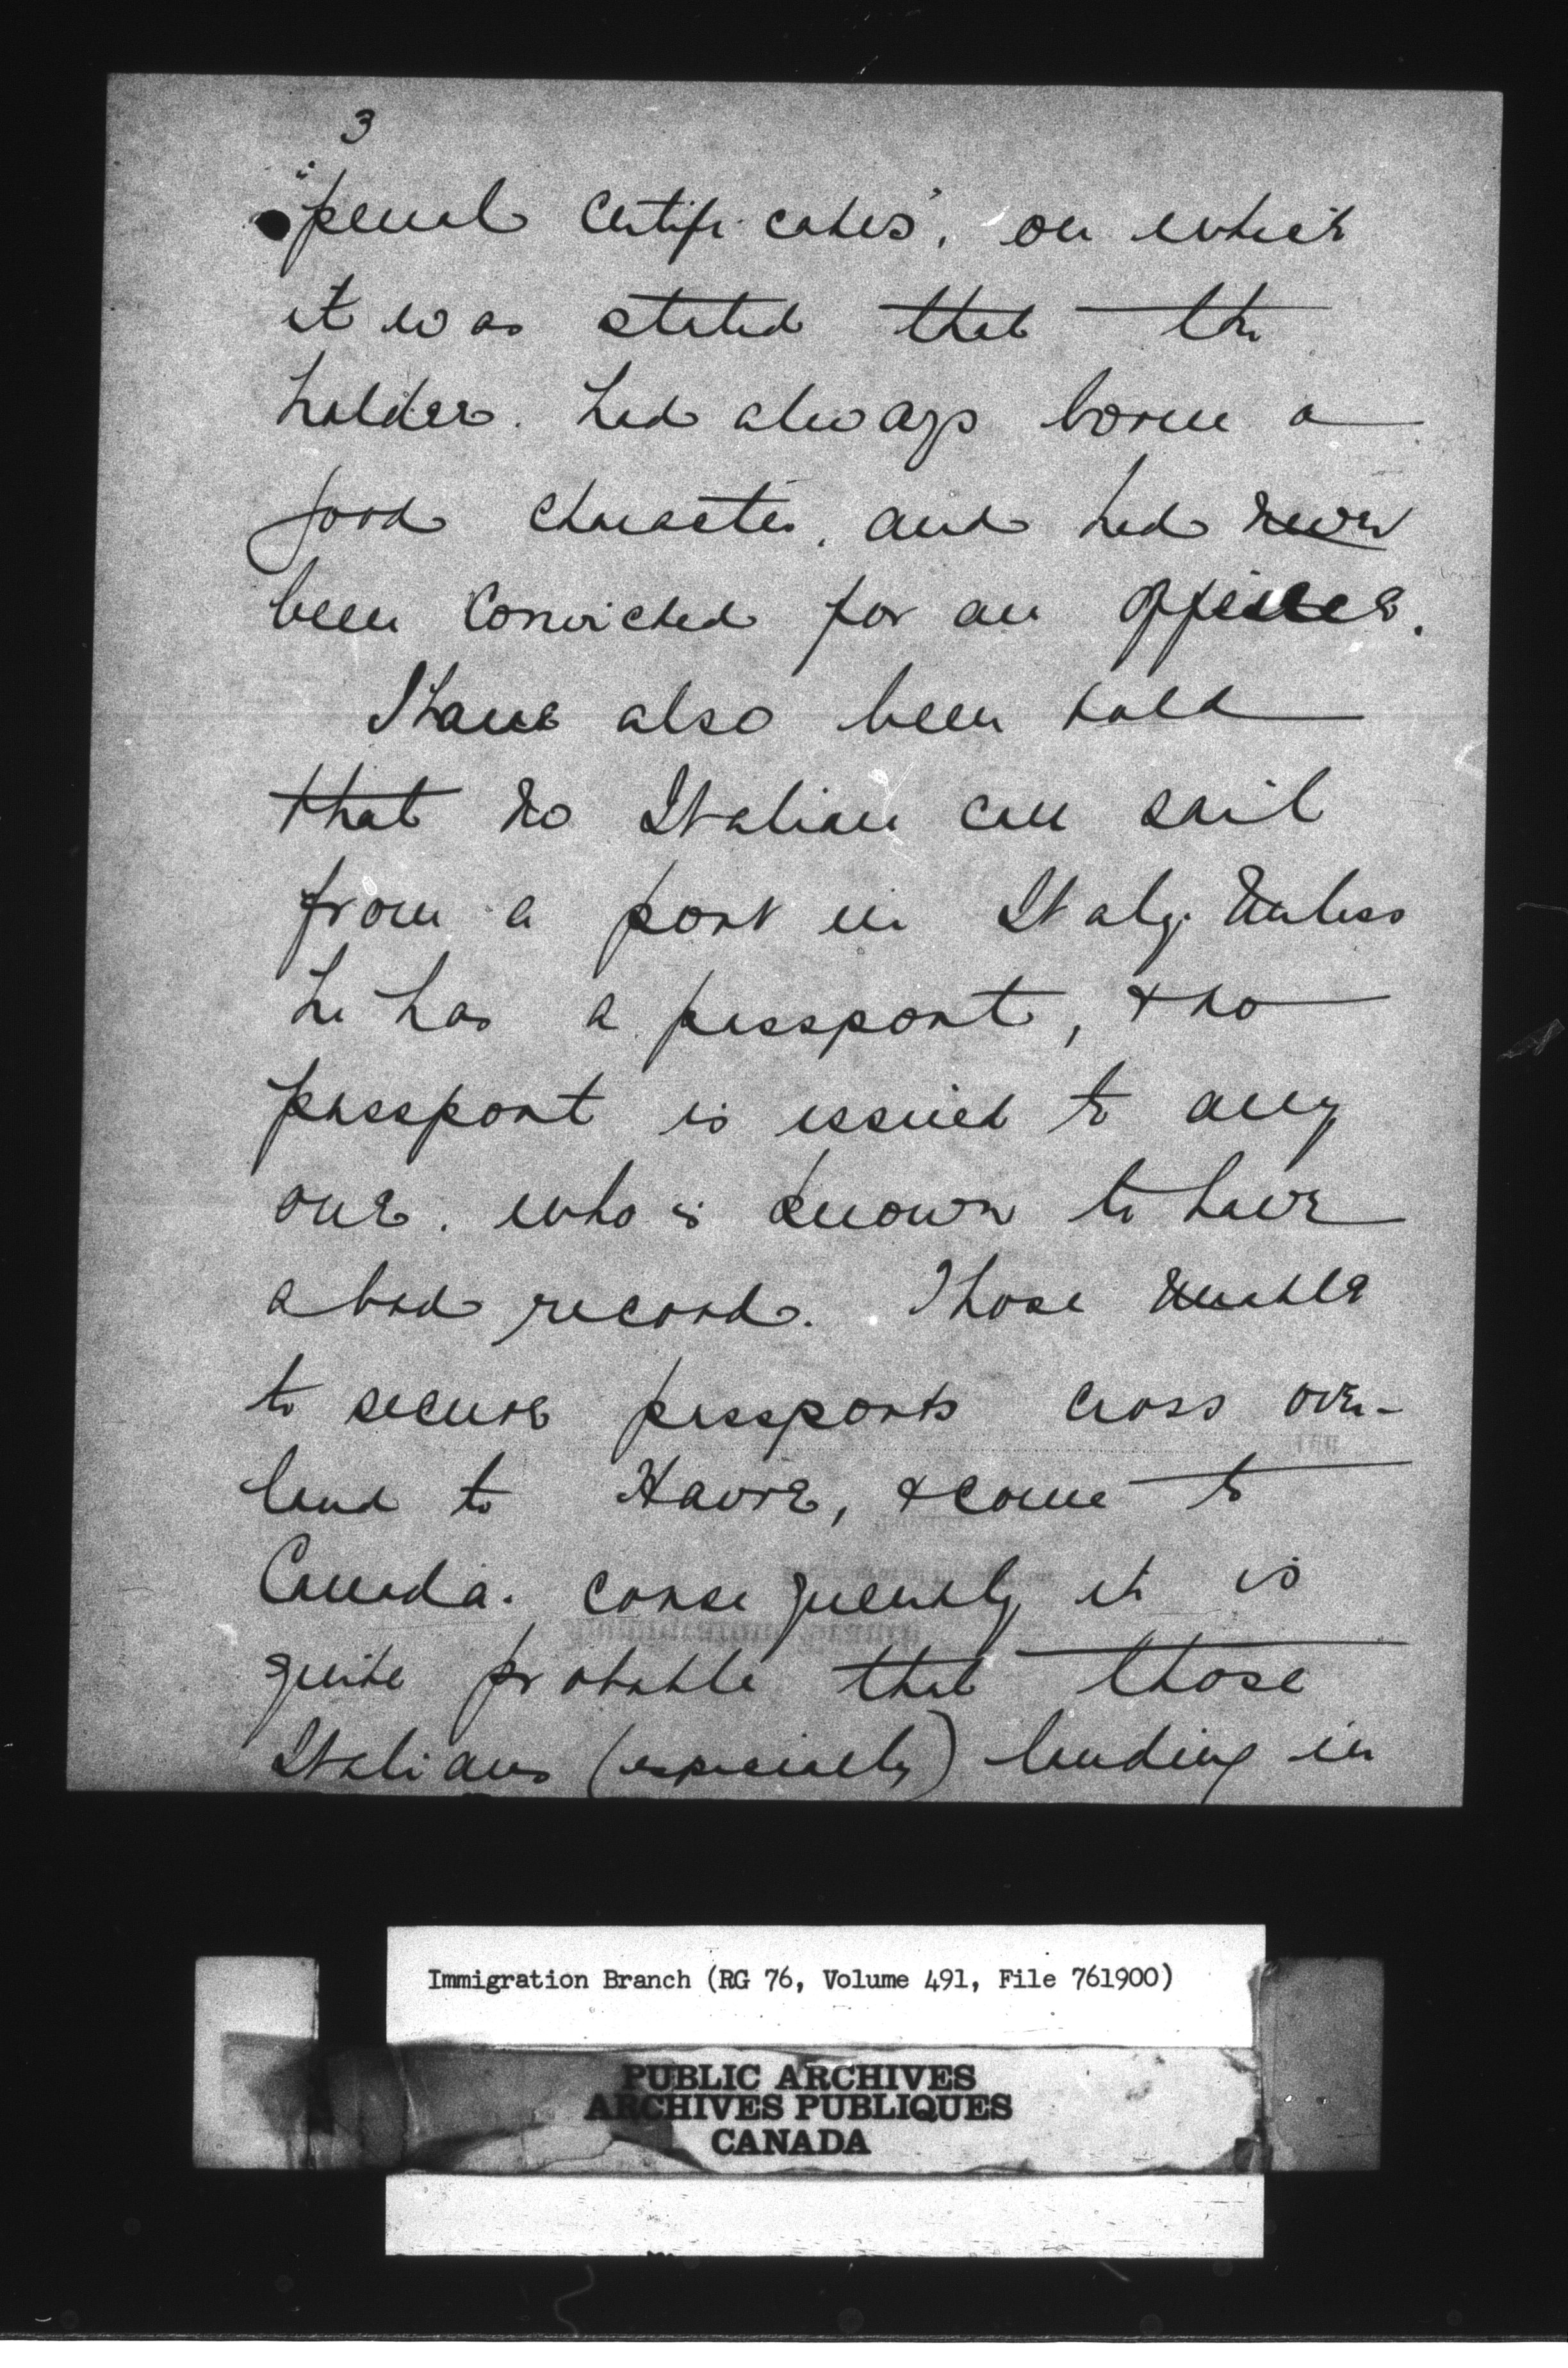 3
"penal certificates", on which
it was stated that the
holder had always borne a
good character, and had never
been convicted for an offence.
I have also been told
that no Italian can sail
from a port in Italy unless
he has a passport, & no
passport is issued to any
one. who is known to have
a bad record. Those unable
to secure passports cross over-
land to Havre, & come to
Canada. consequently it is
quite probable that those
Italians (especially) landing in
Immigration Branch (RG 76, Volume 491, File 761900)
PUBLIC ARCHIVES
ARCHIVES PUBLIQUES
CANADA